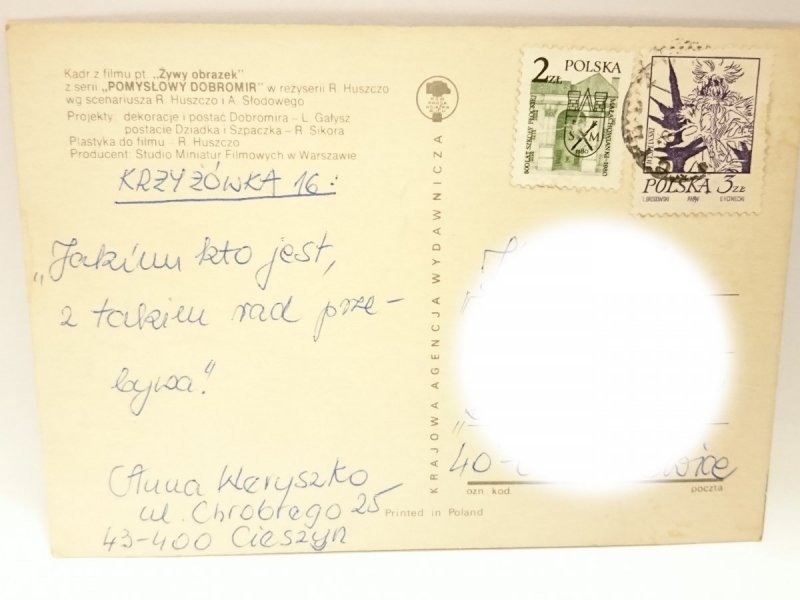 Kadr z filmu pt. „Żywy obrazek”
z serii „POMYSŁOWY DOBROMIR” w reżyserii R. Huszczo
wg scenariusza R. Huszczo i A. Słodowego
Projekty: dekoracje i postać Dobromira – L. Gałysz
postacie Dziadka i Szpaczka – R. Sikora
Plastyka do filmu – R. Huszczo
Producent: Studio Miniatur Filmowych w Warszawie
KRZYŻÓWKA 16:
„Jakim kto jest,
z takim rad prze-
bywa."
Anna Waryszko
ul. Chrobrego 25
43-400 Cieszyn
KRAJOWA AGENCJA WYDAWNICZA
2 ZŁ POLSKA
800 LAT SZKOŁY PŁOCKIEJ
SM
1180
POLSKA 3 ZŁ
40-
ozn. kod.
poczta
Printed in Poland